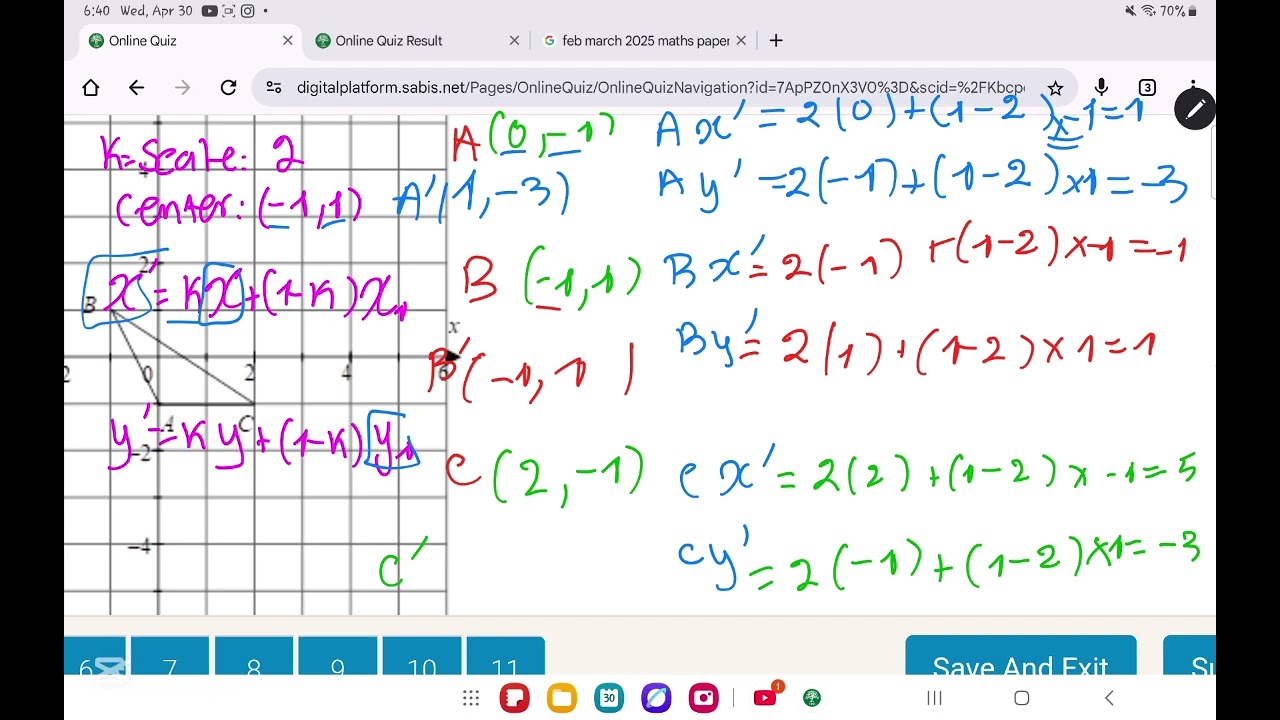 6:40 Wed, Apr 30
70%
Online Quiz
Online Quiz Result
feb march 2025 maths paper
digitalplatform.sabis.net/Pages/OnlineQuiz/OnlineQuizNavigation?id=7ApPZ0nX3V0%3D&scid=%2FKbcp
3
K=scale: 2
center: (-1,1)
x' = Kx+(1-K)x₁
y' = Ky+(1-K)y₁
2
B
x
2
0
2
4
6
A
C
-2
-4
A (0,-1)
A'(1,-3)
B (-1,1)
B'(-1,1)
C (2,-1)
C'
A x' = 2(0)+(1-2)x-1=1
A y' =2(-1)+(1-2)x1=-3
B x' = 2(-1) +(1-2)x-1=-1
B y' = 2(1)+(1-2)x1=1
C x' = 2(2)+(1-2)x-1=5
C y' = 2(-1)+(1-2)x1=-3
6
7
8
9
10
11
Save And Exit
Su
30
1